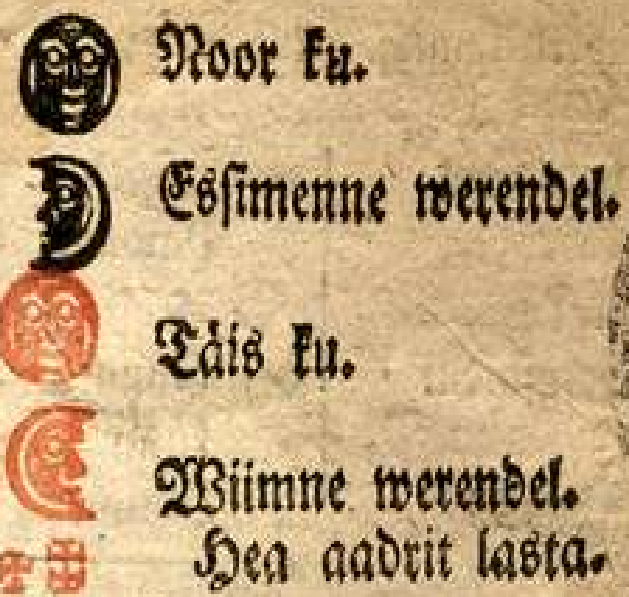 Noor ku.
Essimenne werendel.
Täis ku.
Wiimne werendel.
Hea aadrit lasta.